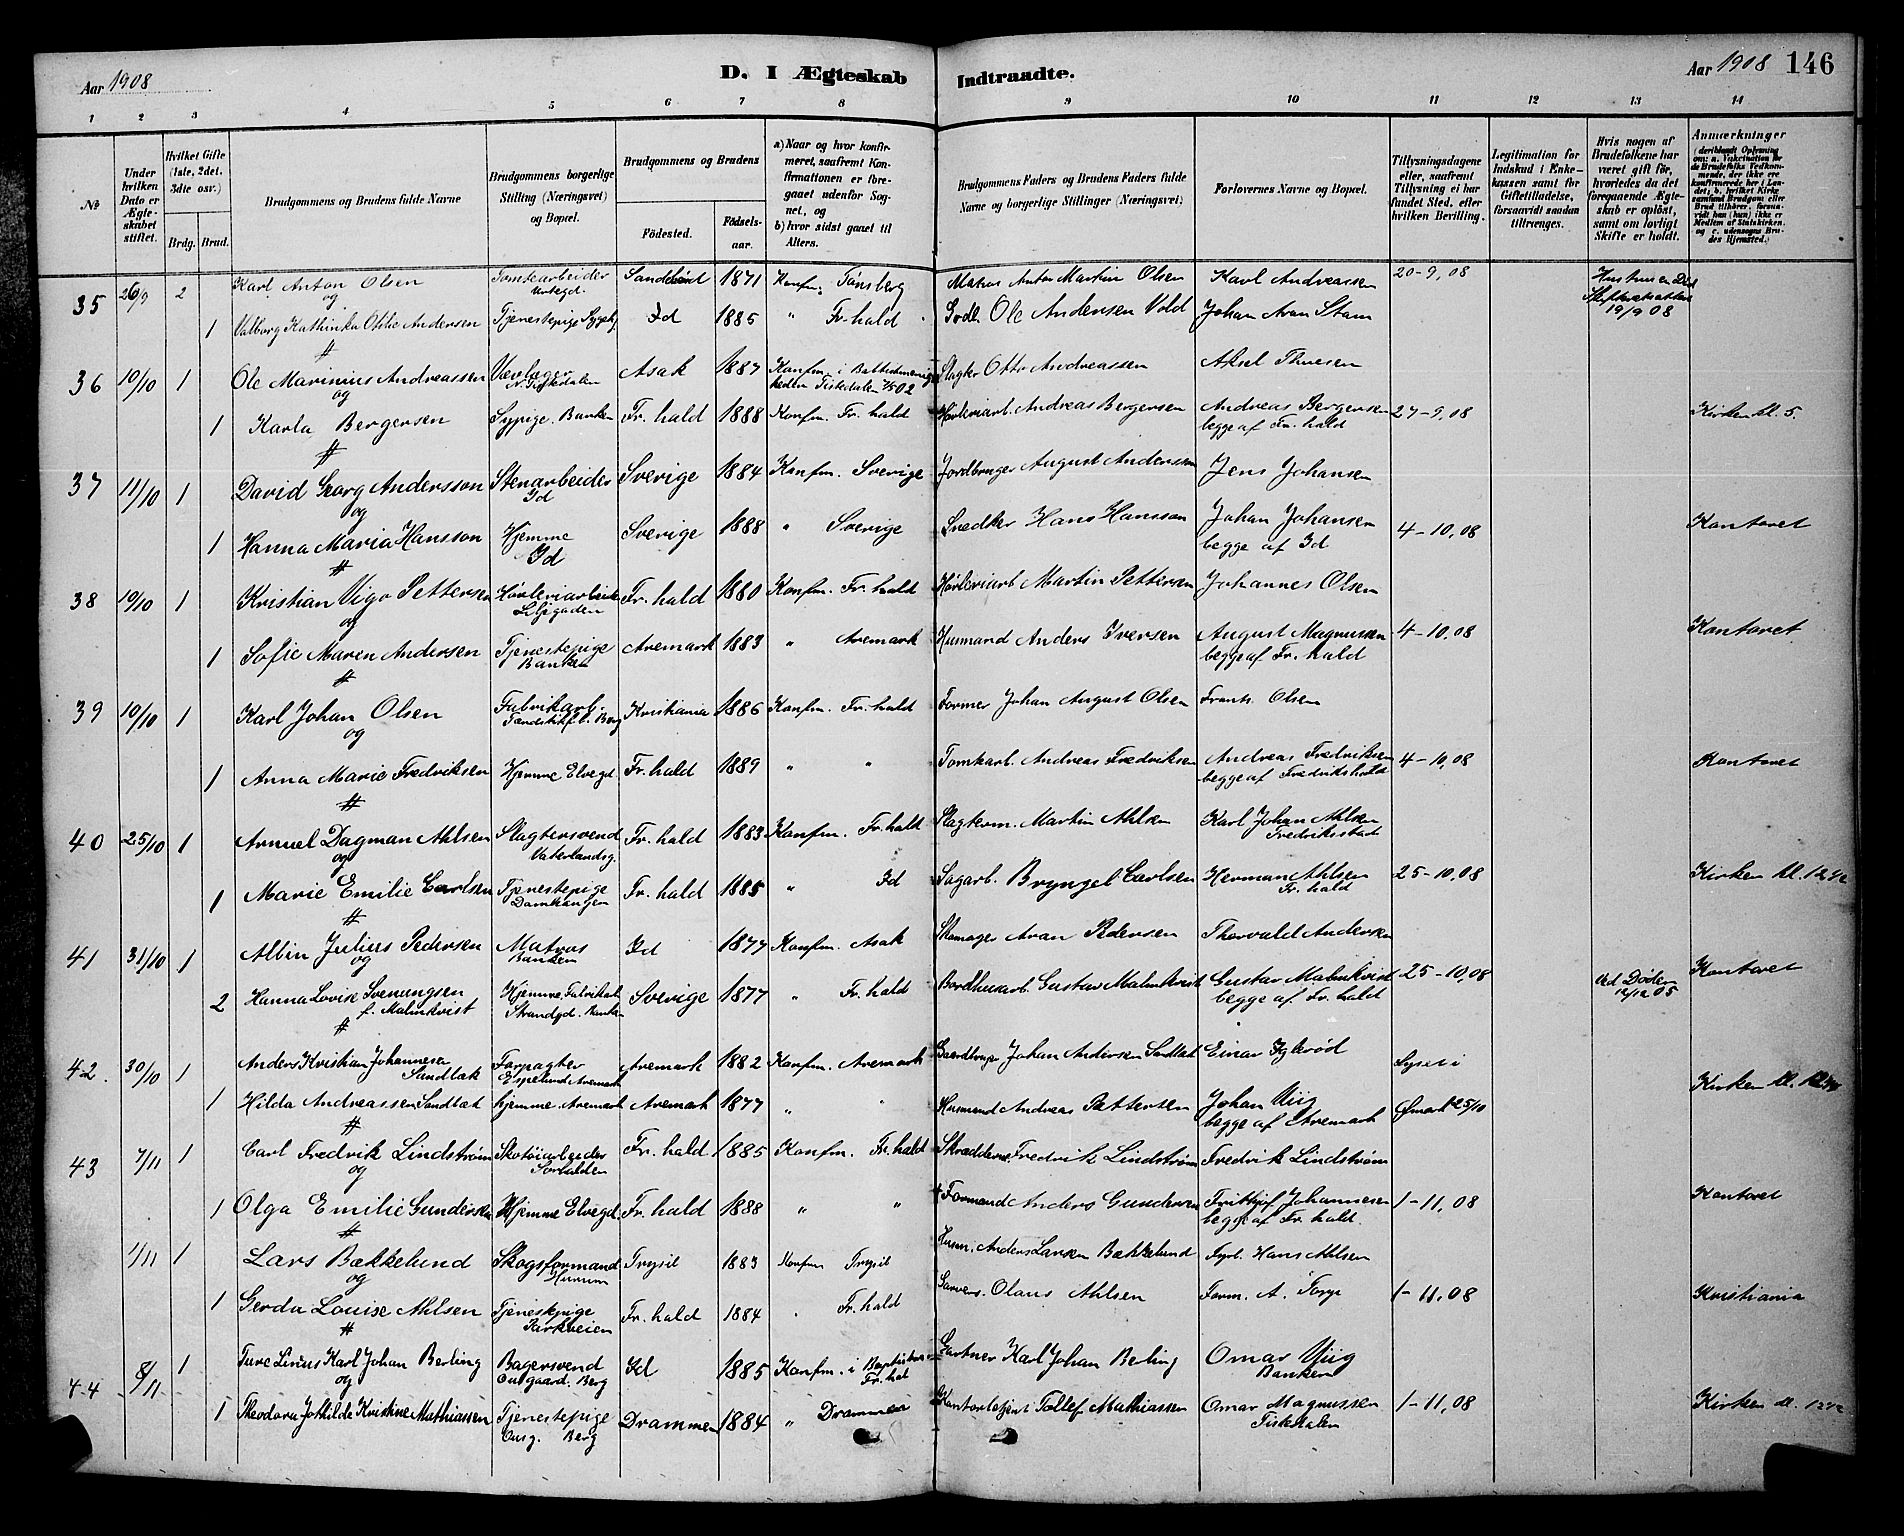 Aar 1908
D. I Ægteskab Indtraadte.
Aar 1908 146
1 2 3 4 5 6 7 8 9 10 11 12 13 14
No
Under hvilken Dato er Ægteskabet stiftet.
Hvilket Gifte (1ste, 2det, 3die osv.)
Brdg. Brud.
Brudgommens og Brudens fulde Navne
Brudgommens borgerlige Stilling (Næringsvei) og Bopæl.
Brudgommens og Brudens
Fødested. Fødselsaar.
a) Naar og hvor konfirmeret, saafremt Konfirmationen er foregaaet udenfor Sognet, og b) hvor sidst gaaet til Alters.
Brudgommens Faders og Brudens Faders fulde Navne og borgerlige Stillinger (Næringsvei)
Forlovernes Navne og Bopæl.
Tillysningsdagene eller, saafremt Tillysning ei har fundet Sted, efter hvilken Bevilling.
Legitimation for Indskud i Enkekassen samt for Giftetilladelse, forsaavidt saadan tiltrænges.
Hvis nogen af Brudefolkene har været gift før, hvorledes da det foregaaende Ægteskab er opløst, samt om lovligt Skifte er holdt.
Anmærkninger
35 26/9 2 Karl Anton Olsen Tomtearbeider 1871 Konfm. Tønsberg Matros Anton Martin Olsen Karl Andreassen 20-9,08
og
1 Valborg Kathinka Otilie Andersen Tjenestepige Id 1885 " Fr.hald Ole Andersen Vold Johan Aran Stam 19/9 08
36 10/10 1 Ole Marinius Andreassen Asak 1887 Konfm. i Tistedalen Slagter Otto Andreassen Aksel Thuesen
og
1 Karla Bergersen Sypige. Banken Fr. hald 1888 Konfm. Fr. hald Høvleriarb. Andreas Bergersen Andreas Bergersen 27-9,08 Kirken kl. 5.
begge af Fr. hald
37 11/10 1 David Georg Andersson Stenarbeider Sverige 1884 Konfm. Sverige Jordbruger August Andersson Jens Johansen
og Id
1 Hanna Maria Hansson Hjemme Sverige 1888 " Sverige Snedker Hans Hansson Johan Johansen 4-10,08 Kontoret
Id begge af Id
38 10/10 1 Kristian Vigo Pettersen Høvleriarbeider Fr. hald 1880 Konfm. Fr. hald Høvleriarb. Martin Pettersen Johannes Olsen
og
1 Sofie Maren Andersen Tjenestepige Aremark 1883 " Aremark Husmand Anders Iversen August Magnussen 4-10,08 Kontoret
Banken begge af Fr. hald
39 10/10 1 Karl Johan Olsen Fabrikarb. Kristiania 1886 Konfm. Fr. hald Former Johan August Olsen Frants Olsen
og Tændstikf. Berg
1 Anna Marie Fredriksen Hjemme Elvegd. Fr. hald 1889 " " Tomtarb. Andreas Fredriksen Andreas Fredriksen 4-10,08 Kontoret
begge af Fredrikshald
40 25/10 1 Arnuel Dagman Ahlsen Slagtersvend Fr. hald 1883 Konfm. Fr. hald Slagterm. Martin Ahlsen Karl Johan Ahlsen
og Vaterlandsg. Fredriksstad
1 Marie Emilie Carlsen Tjenestepige Fr. hald 1885 " Id Sagarb. Bryngel Carlsen Herman Ahlsen 25-10,08 Kirken kl. 12 1/2
Damhaugen Fr. hald
41 31/10 1 Albin Julius Pedersen Matros Id 1877 Konfm. Asak Skomager Aran Pedersen Thorvald Andersen
og Banken
2 Hanna Lovise Svenungsen Hjemme Sverige 1877 " Fr. hald Bordhusarb. Gustav Malmkvist Gustav Malmkvist 25-10,08 Ved Døden Kontoret
f. Malmkvist Strandgd. begge af Fr. hald 12/12 05
42. 30/10 1 Anders Kristian Johannesen Forpagter Aremark 1882 Konfm. Aremark Johan Andersen Sandtak Einar Iglerød Lyset i
Sandtak Aremark
1 Hilda Andreassen Sandtak hjemme. Aremark Aremark 1877 " " Husmand Andreas Pettersen Johan Viig Ømark 25/10 Kirken kl. 12 1/2
begge af Aremark
43 7/11 1 Carl Fredrik Lindstrøm Skotøiarbeider Fr. hald 1885 Konfm. Fr. hald Fredrik Lindstrøm Fredrik Lindstrøm
og Sørhalden
1 Olga Emilie Gundersen Hjemme Elvegd. Fr. hald 1888 " " Formand Anders Gundersen Frithjof Johannesen 1-11,08 Kontoret
begge af Fr. hald.
1/11 1 Lars Bækkelund Skogsformand Trysil 1883 Konfm Trysil Husm. Anders Larsen Bækkelund Fyrb. Hans Ahlsen
og Hurum
1 Gerda Louise Ahlsen Tjenestepige Fr. hald 1884 " Fr. hald Olaus Ahlsen Form. A. Torp 1-11,08 Kristiania
Parkveien
44 8/11 1 Ture Linus Karl Johan Berling Bagersvend Id 1885 Konfm. i Fr. hal Gartner Karl Johan Berling Omar Viig
og Berg Banken
1 Theodora Jothilde Kristine Mathiassen Tjenestepige Drammen 1884 " Drammen Kontorbetjent Tollef Mathiassen Omar Magnussen 1-11,08 Kirken kl. 12 1/2
Berg Tistedalen